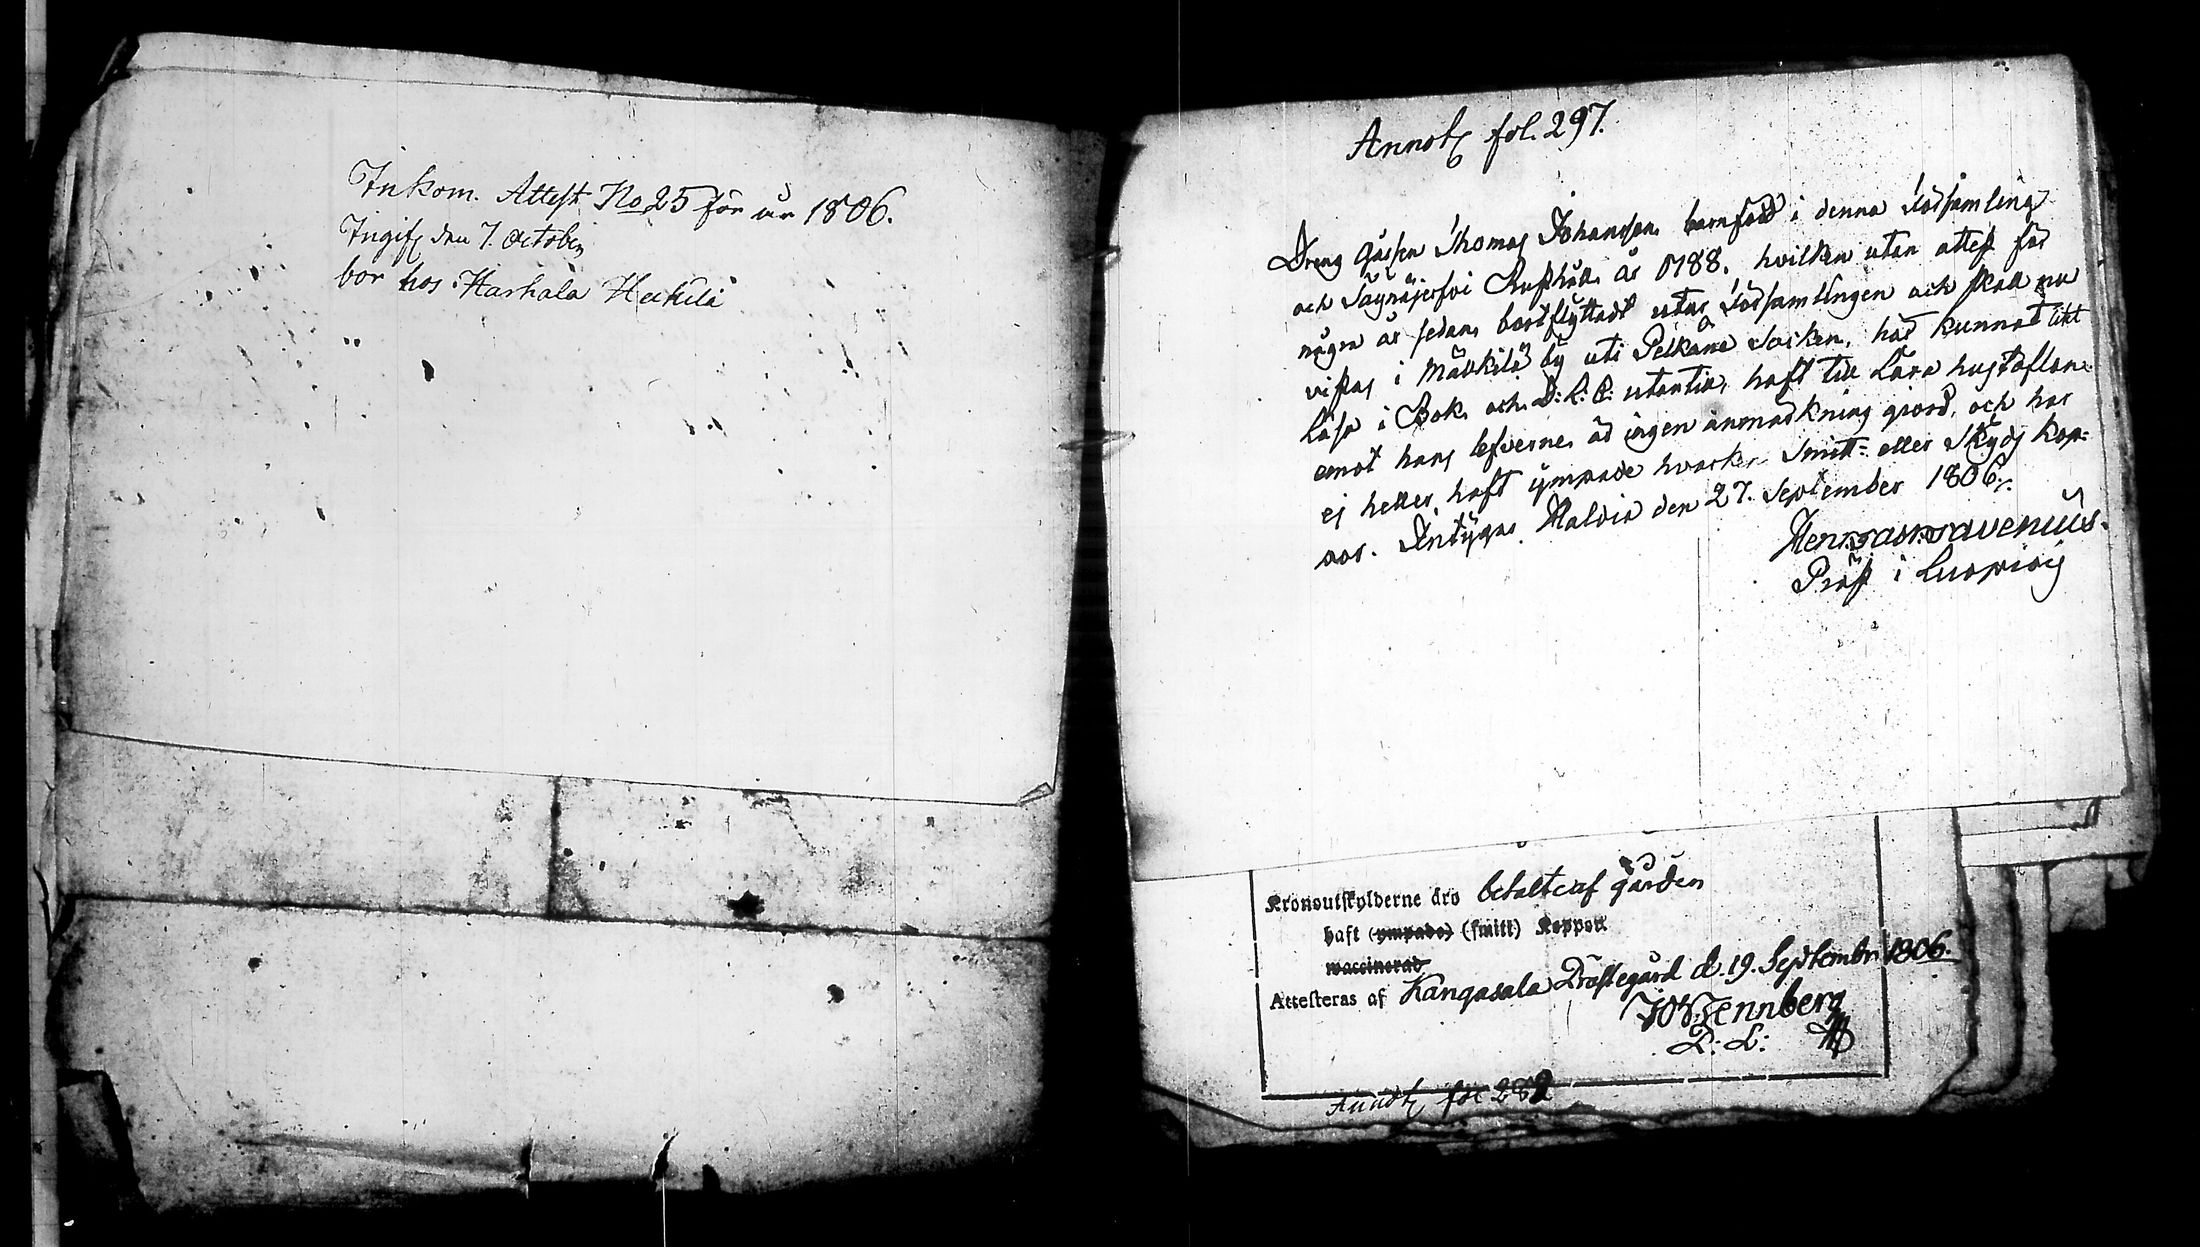 Inkom. Attest No 25 för år 1806.
Ingifv den 7. October
bor hos Harhala Heikilä
Annot fol. 297.
Dreng Gåssen Thomas Johansson barnfödd i denna Församling
och Säynäjerfvi Rusthåll år 1788, hvilken utan attest för
några år sedan bortflyttadt utur Församlingen och skall nu
vistas i Mälkilä by uti Pelkäne Socken, har kunnat litet
läsa i Bok och D: L: C: utantill, haft till Lära hustaflan
emot hans lefverne är ingen anmärkning gjord, och har
ej heller haft ympade hvarken Smitt- eller Skydds kop-
por. Intygar Maldia den 27. September 1806.
Avenius
Pråst i
Kronoutskylderne äro betalte af gården
haft (ympade) (smitt) Koppor
waccinerad
Attesteras af Kangasala Prästegård d. 19. Septembr 1806.
Wennberg
P: L:
Annot fol 282